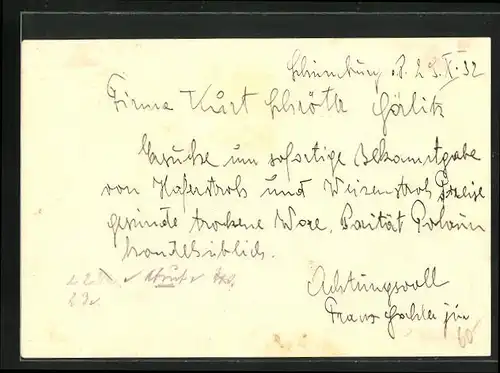 Schumburg 23.X.32
Firma Kurt Schröter Görlitz
Ersuche um sofortige Bekanntgabe
von Haferstroh und Weizenstroh Preise
gesunde trockene Ware, Parität Polaun
handelsüblich.
Achtungsvoll
Franz jun